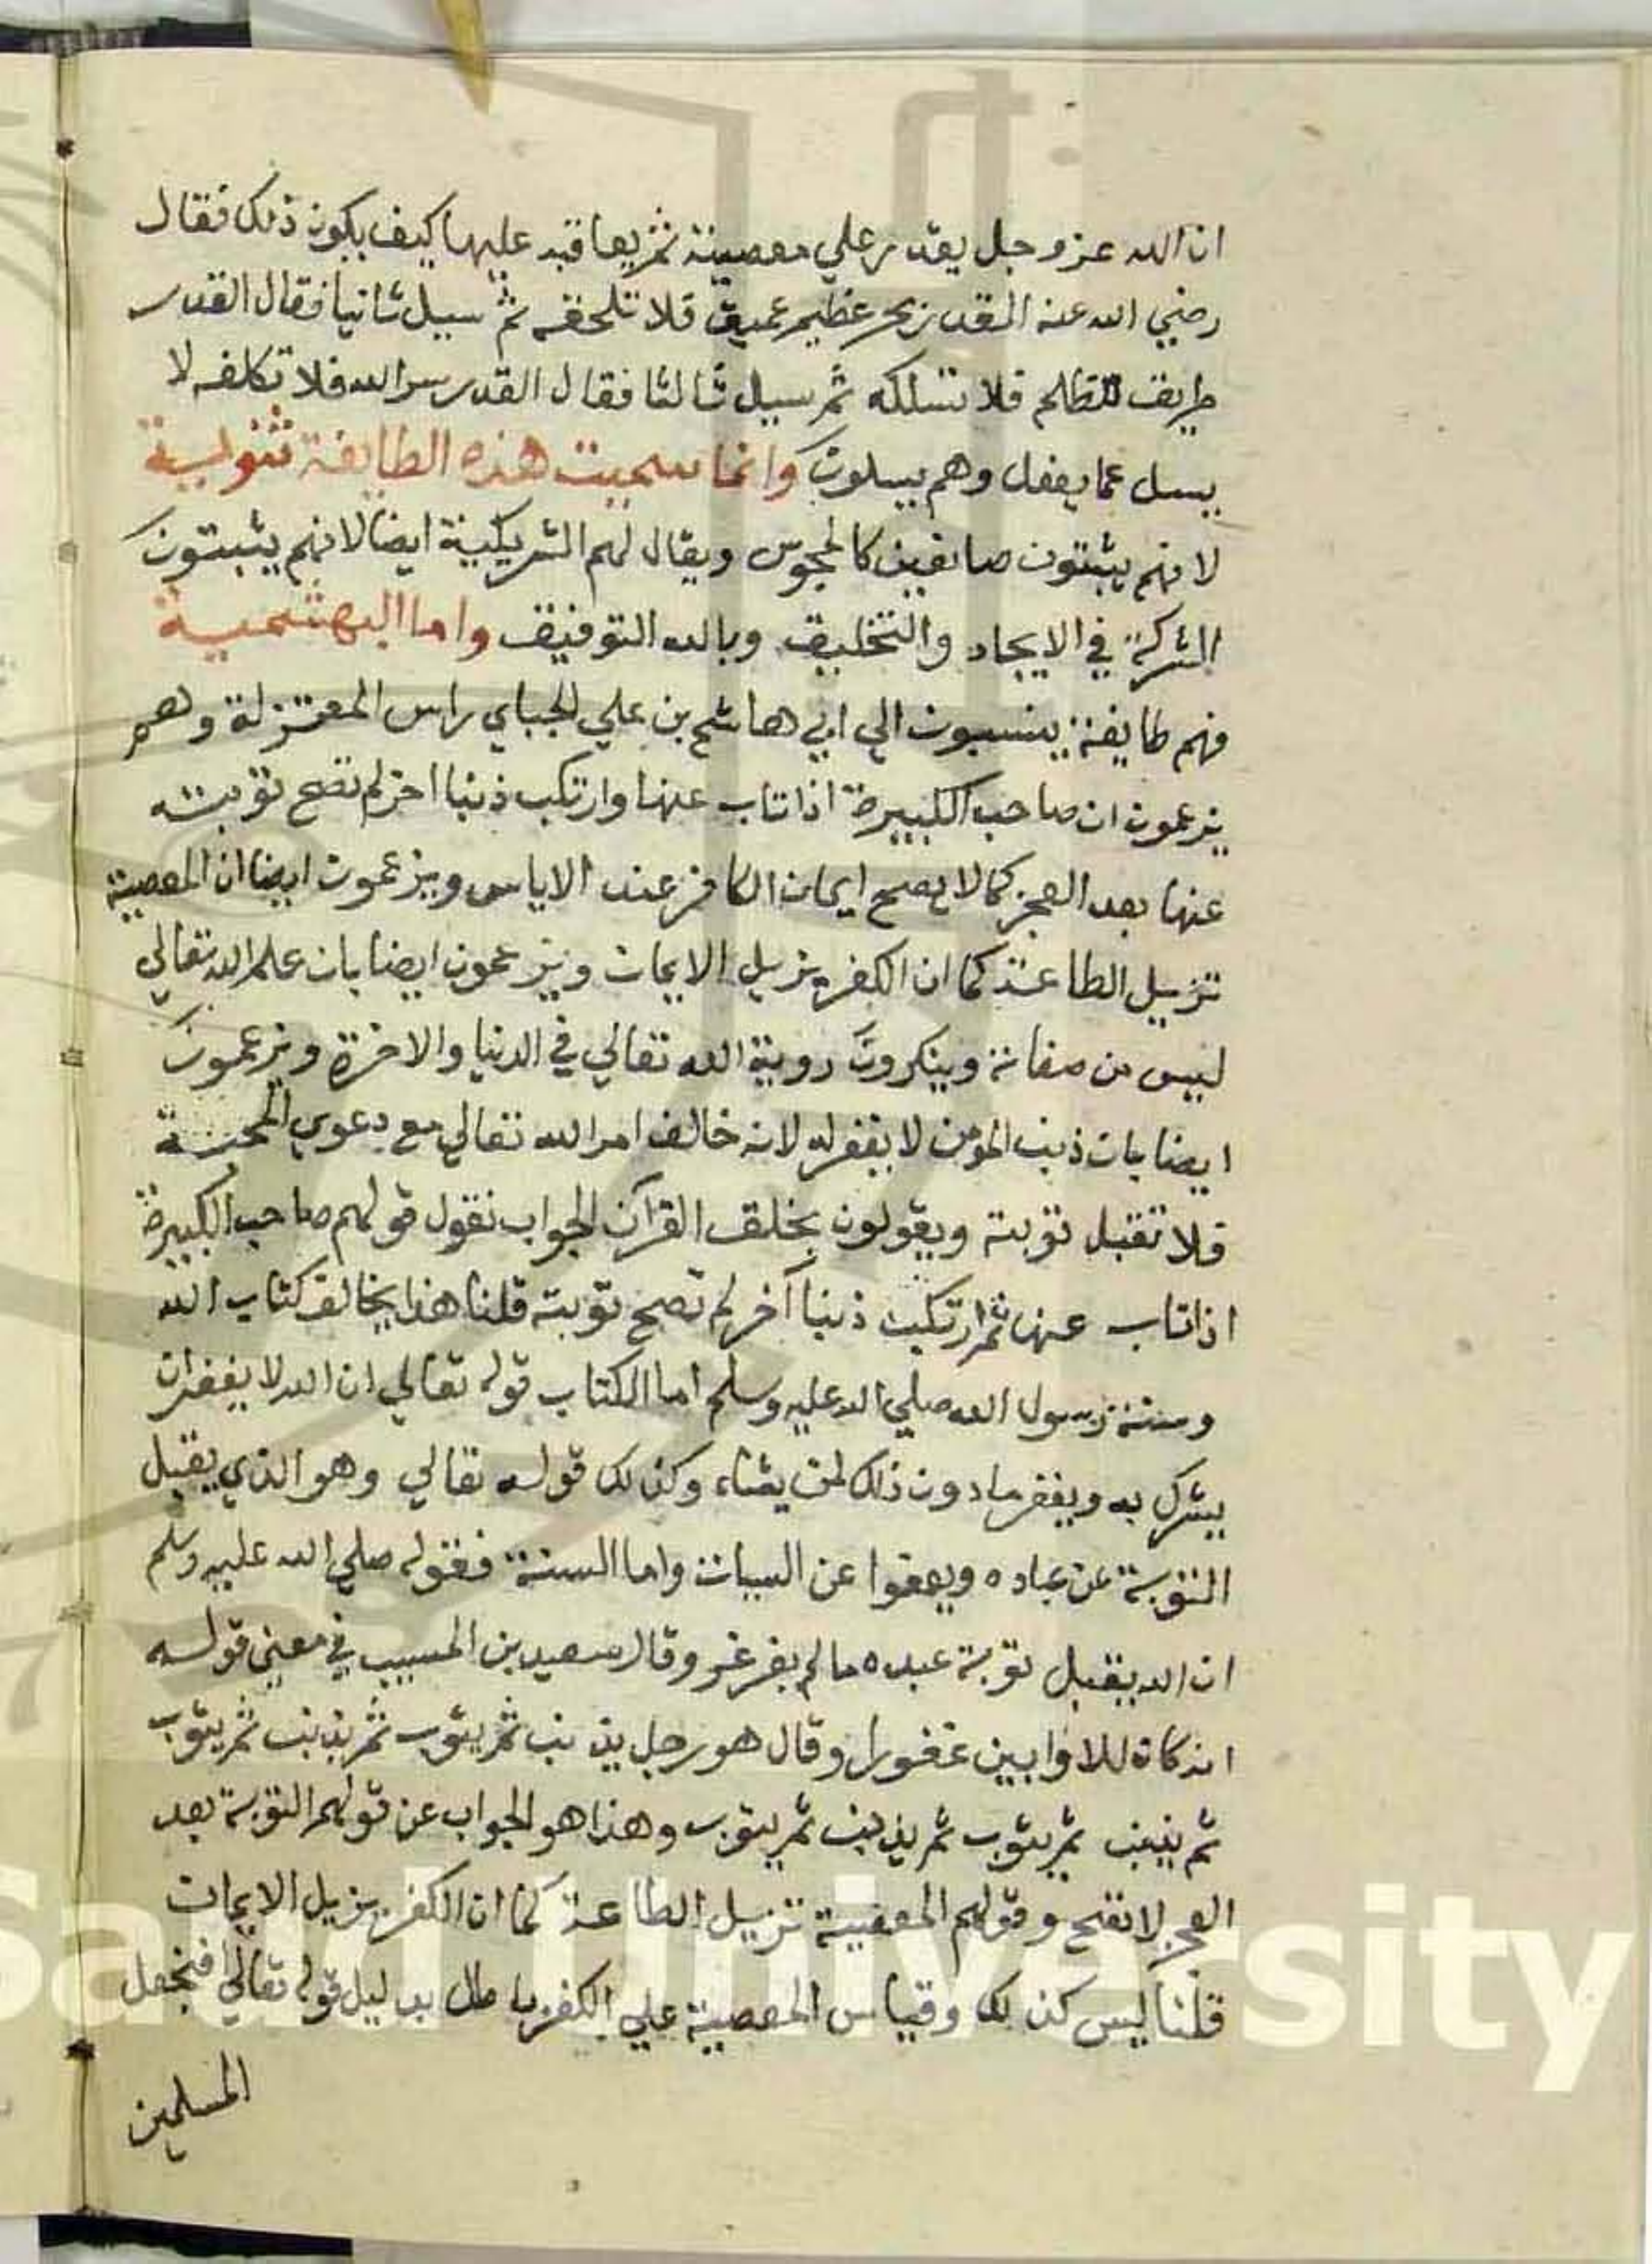 ان الله عز وجل يقدر علي معصية ثم يعاقبه عليها كيف يكون ذلك فقال
رضي الله عنه القدر بحر عظيم عميق فلا تلحقه ثم سيل ثانيا فقال القدر
طريق مظلم فلا تسلكه ثم سيل ثالثا فقال القدر سر الله فلا تكلفه لا
يسل عما يفعل وهم يسلون وانما سميت هذه الطايفة ثنوية
لانهم يثبتون صانعين كالمجوس ويقال لهم الشريكية ايضا لانهم يثبتون
الشركة في الايجاد والتخليق وبالله التوفيق واما البهشمية
فهم طايفة ينسبون الي ابي هاشم بن علي الجباي راس المعتزلة وهم
يزعمون ان صاحب الكبيرة اذا تاب عنها وارتكب ذنبا اخر لم تصح توبته
عنها بعد العجز كما لا يصح ايمان الكافر عند الاياس ويزعمون ايضا ان المعصية
تزيل الطاعة كما ان الكفر يزيل الايمان ويزعمون ايضا بان علم الله تعالي
ليس من صفاته وينكرون روية الله تعالي في الدنيا والاخرة ويزعمون
ايضا بان ذنب المومن لا يغفر له لانه خالف امر الله تعالي مع دعوي المحبة
فلا تقبل توبته ويقولون بخلق القرآن الجواب نقول قولهم صاحب الكبيرة
اذا تاب عنها ثم ارتكب ذنبا آخر لم تصح توبته قلنا هذا يخالف كتاب الله
وسنة رسول الله صلي الله عليه وسلم اما الكتاب قوله تعالي ان الله لا يغفر ان
يشرك به ويغفر ما دون ذلك لمن يشاء وكذلك قوله تعالي وهو الذي يقبل
التوبة عن عباده ويعفوا عن السيات واما السنة فقوله صلي الله عليه وسلم
ان الله يقبل توبة عبده ما لم يغرغر وقال سعيد بن المسيب في معني قوله
انه كان للاوابين غفورا وقال هو رجل يذنب ثم يتوب ثم يذنب ثم يتوب
ثم يذنب ثم يتوب ثم يذنب ثم يتوب وهذا هو الجواب عن قولهم التوبة بعد
العجز لا تصح وقولهم المعصية تزيل الطاعة كما ان الكفر يزيل الايمان
قلنا ليس كذلك وقياس المعصية علي الكفر باطل بدليل قوله تعالي افنجعل
المسلمين
Saud University